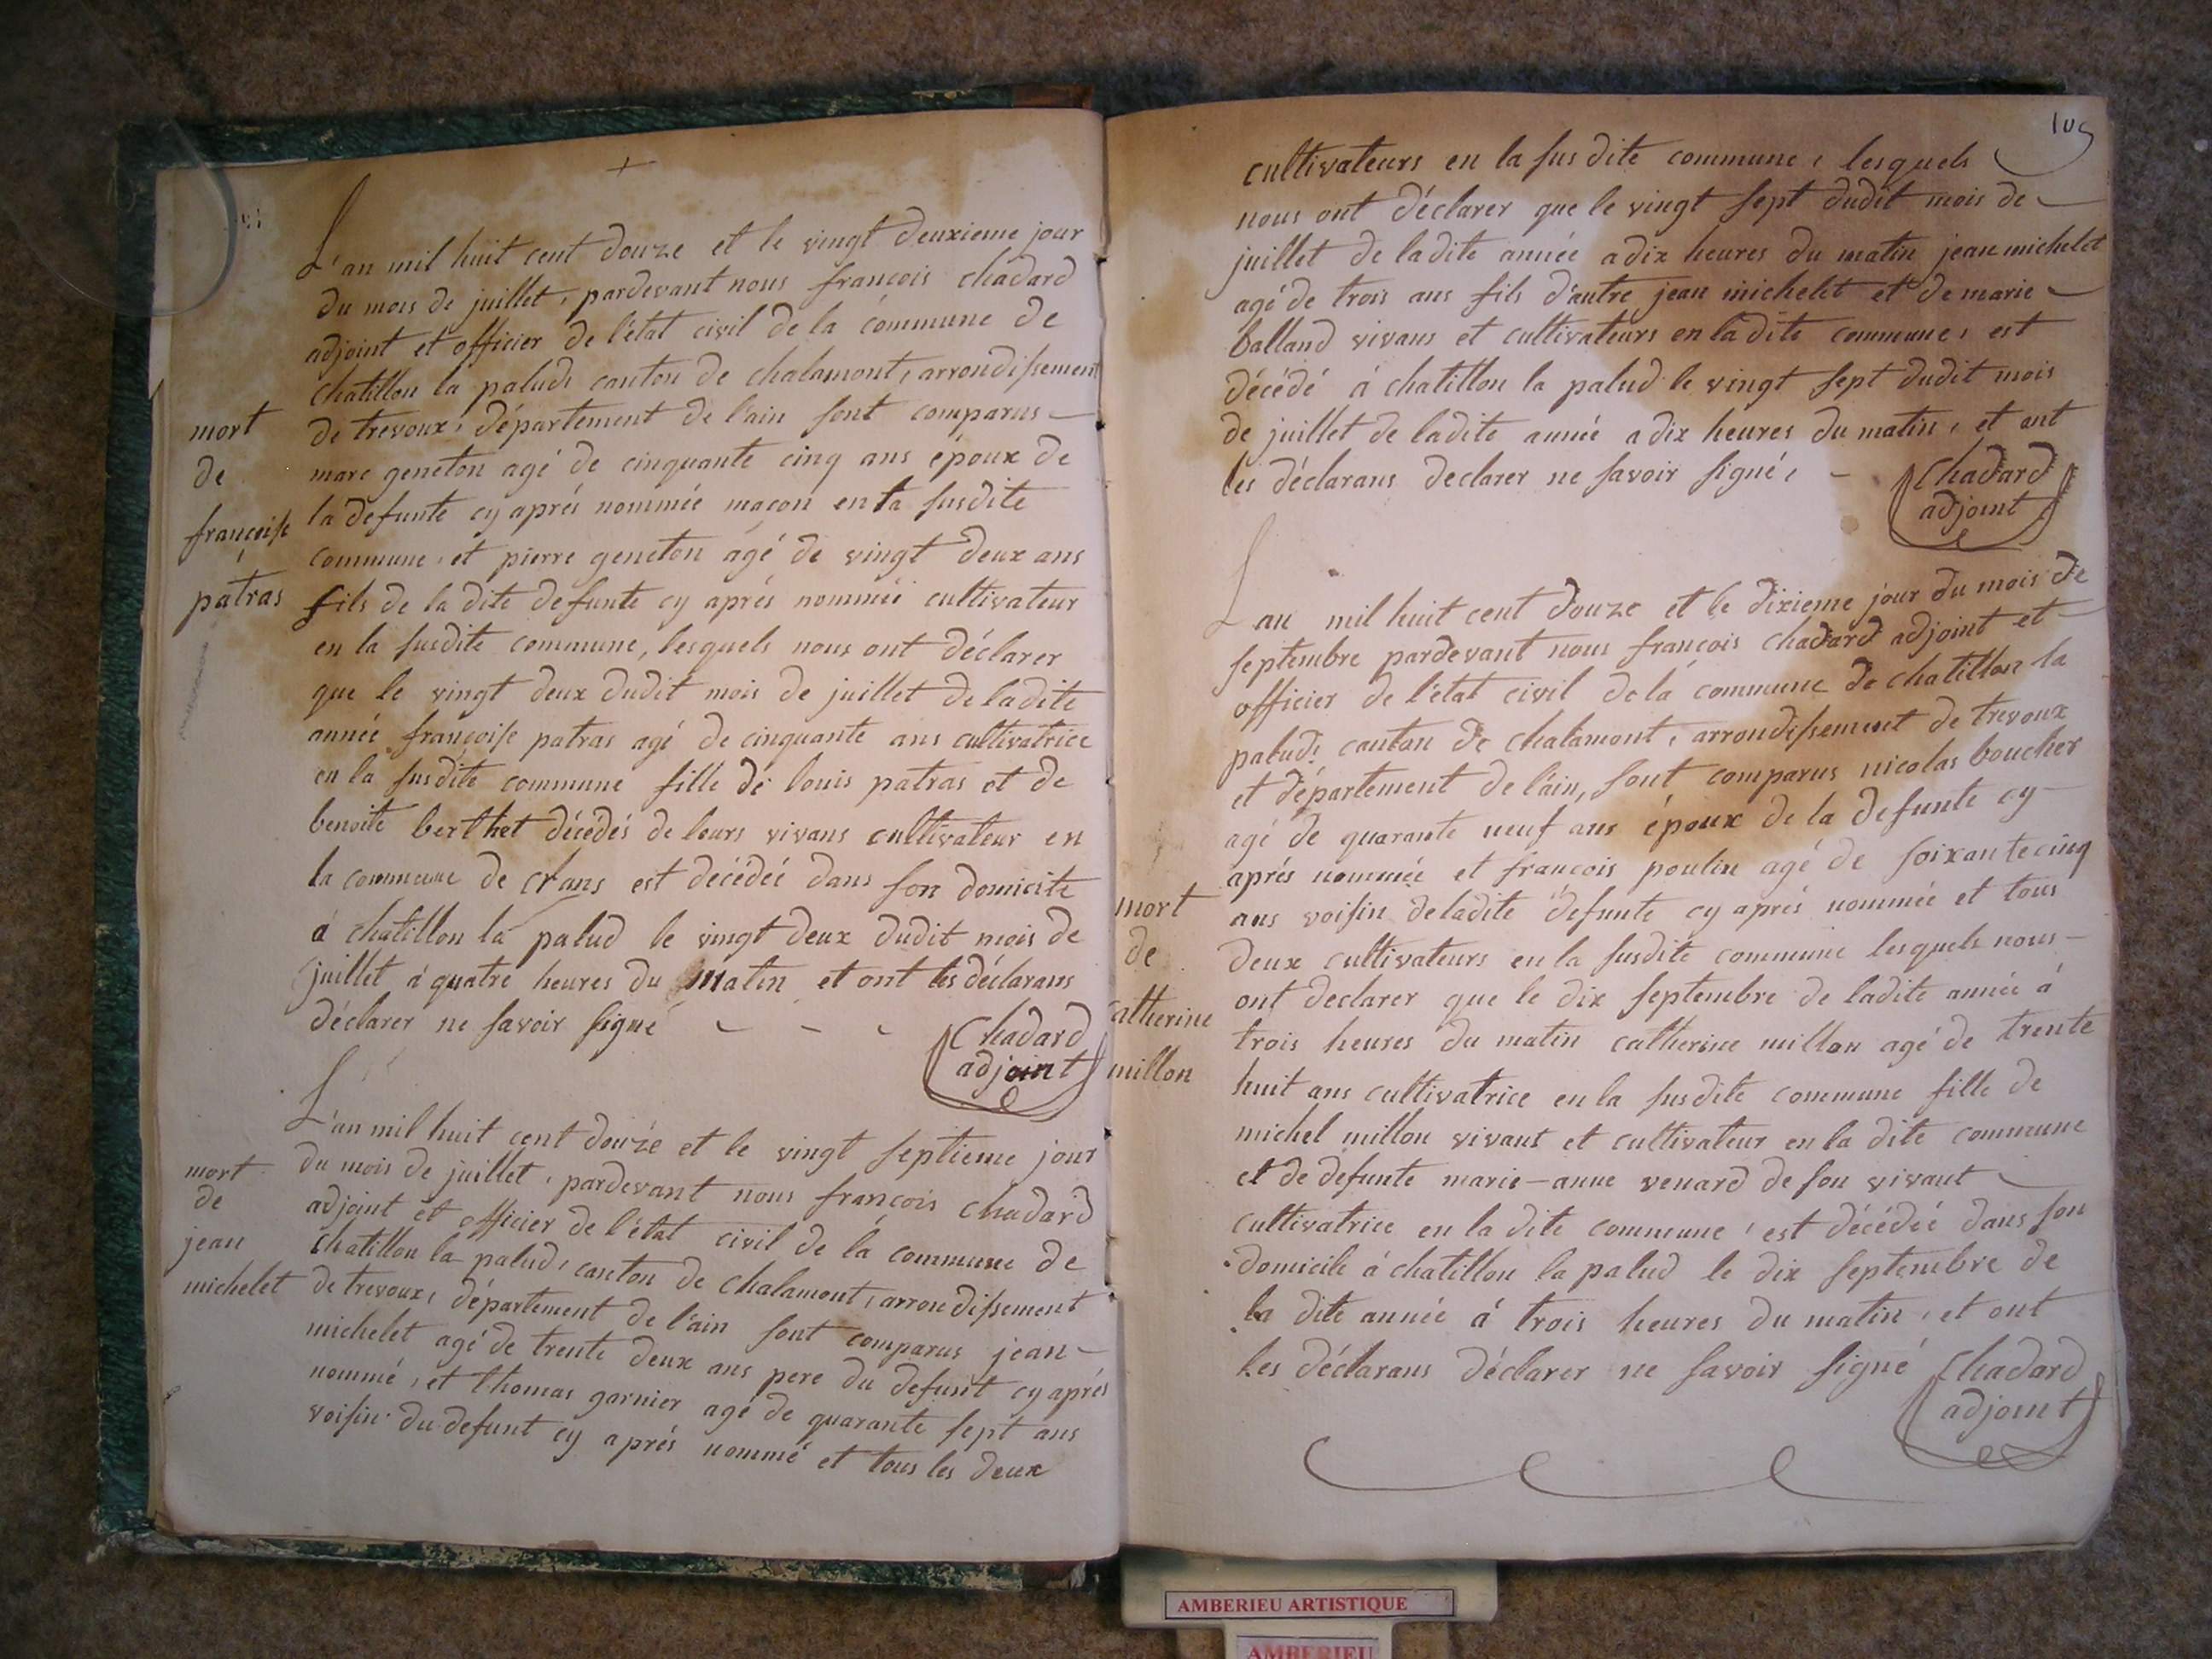 L'an mil huit cent douze et le vingt deuxieme jour
du mois de juillet, pardevant nous françois chadard
adjoint et officier de l'état civil de la commune de
chatillon la palud, canton de chalamont, arrondissement
de trevoux, département de l'ain sont comparus
mort
de
françoise
patras
marc geneton agé de cinquante cinq ans époux de
la defunte cy aprés nommée maçon en la susdite
commune, et pierre geneton agé de vingt deux ans
fils de la dite defunte cy aprés nommée cultivateur
en la susdite commune, lesquels nous ont déclarer
que le vingt deux dudit mois de juillet de ladite
année françoise patras agé de cinquante ans cultivatrice
en la susdite commune fille de louis patras et de
benoite berthet décédés de leurs vivans cultivateur en
la commune de crans est décédée dans son domicile
á chatillon la palud le vingt deux dudit mois de
juillet á quatre heures du matin et ont les déclarans
déclarer ne savoir signé
Chadard
adjoint
L'an mil huit cent douze et le vingt septieme jour
du mois de juillet, pardevant nous françois chadard
adjoint et officier de l'état civil de la commune de
chatillon la palud, canton de chalamont, arrondissement
de trevoux, département de l'ain sont comparus jean
mort
de
jean
michelet
michelet agé de trente deux ans pere du defunt cy aprés
nommé, et thomas garnier agé de quarante sept ans
voisin du defunt cy aprés nommé et tous les deux
105
cultivateurs en la susdite commune, lesquels
nous ont déclarer que le vingt sept dudit mois de
juillet de ladite année a dix heures du matin jean michelet
agé de trois ans fils d'autre jean michelet et de marie
balland vivans et cultivateurs en la dite commune, est
décédé á chatillon la palud le vingt sept dudit mois
de juillet de ladite année a dix heures du matin, et ont
les déclarans declarer ne savoir signé,
Chadard
adjoint
Lan mil huit cent douze et le dixieme jour du mois de
septembre pardevant nous francois chadard adjoint et
officier de l'état civil de la commune de chatillon la
palud, canton de chalamont, arrondissement de trevoux
et département de l'ain, sont comparus nicolas boucher
agé de quarante neuf ans époux de la defunte cy
aprés nommée et francois poulin agé de soixante cinq
mort
de
catherine
millon
ans voisin de ladite defunte cy aprés nommée et tous
deux cultivateurs en la susdite commune lesquels nous
ont declarer que le dix septembre de ladite année á
trois heures du matin catherine millon agé de trente
huit ans cultivatrice en la susdite commune fille de
michel millon vivant et cultivateur en la dite commune
et de defunte marie-anne venard de son vivant
cultivatrice en la dite commune, est décédée dans son
domicile á chatillon la palud le dix septembre de
la dite année á trois heures du matin, et ont
les déclarans déclarer ne savoir signé
Chadard
adjoint
AMBERIEU ARTISTIQUE
AMBERIEU